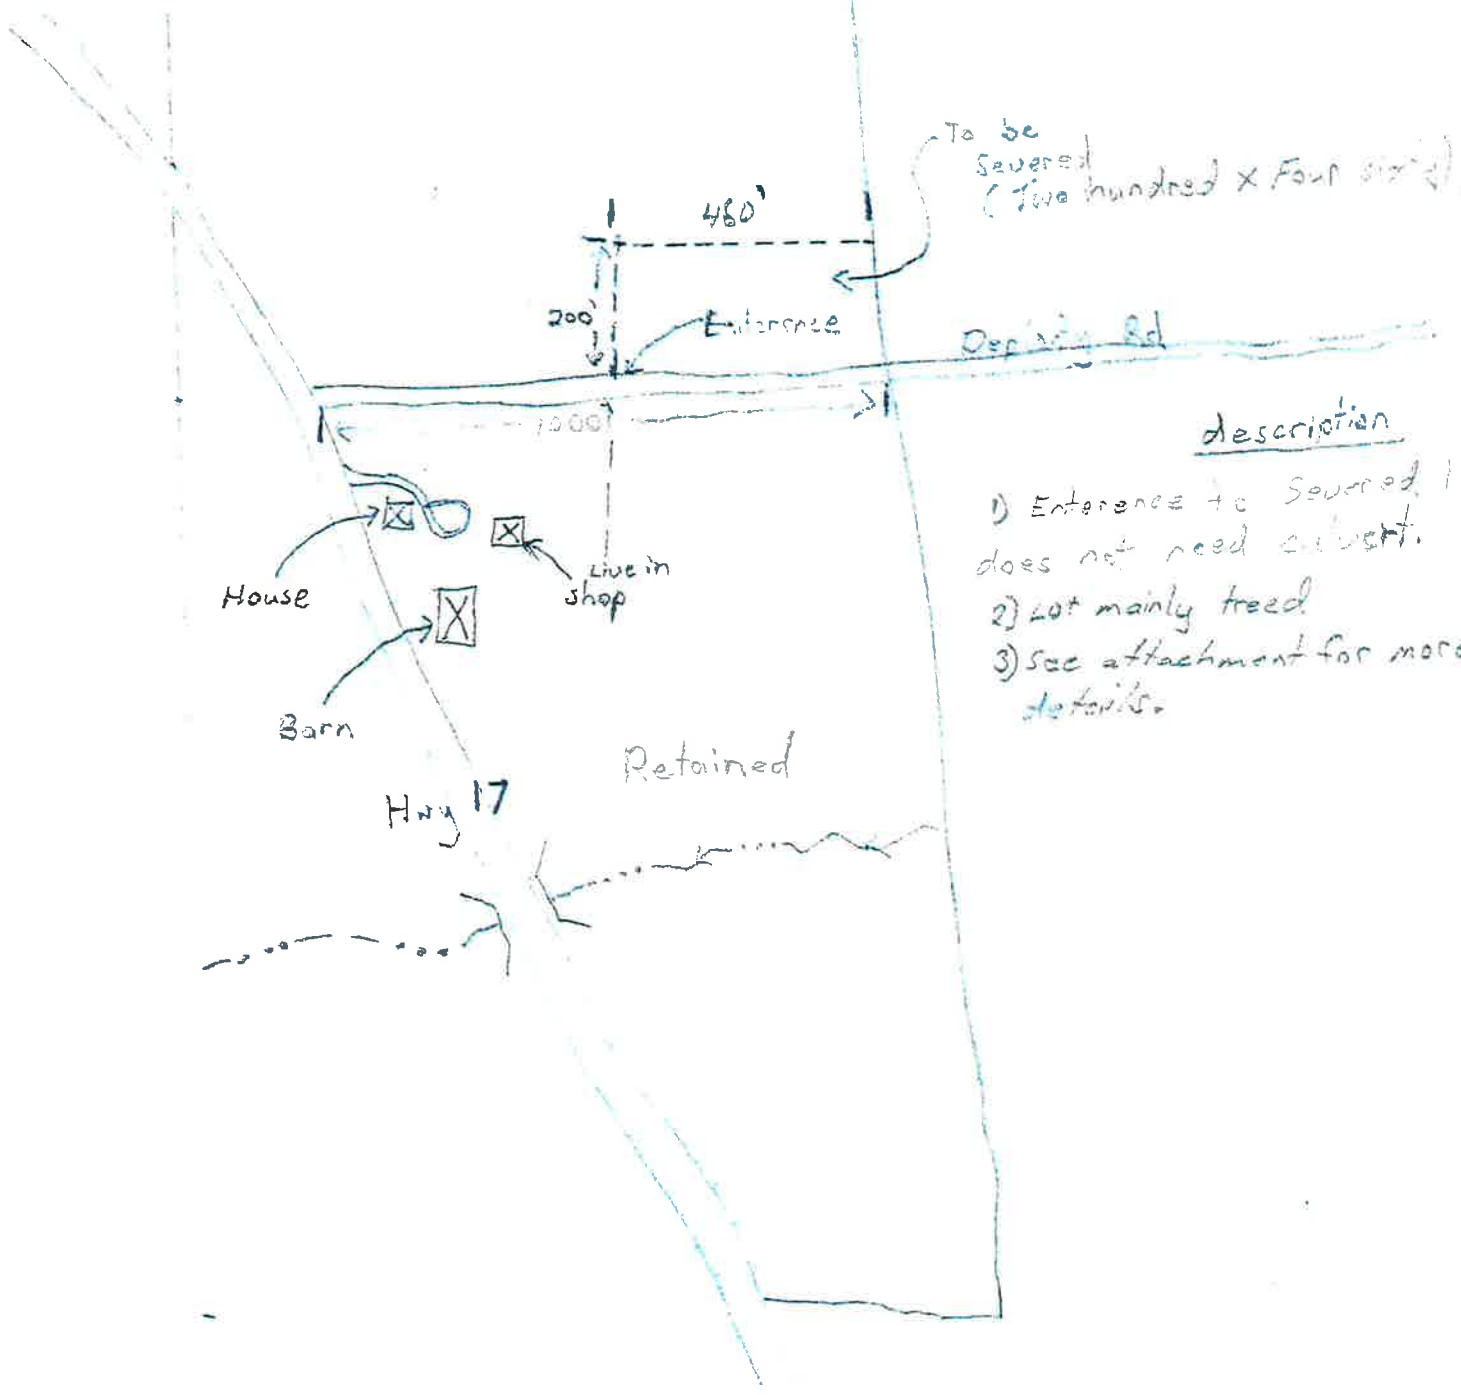 To be
severed
(Two hundred x Four
460'
200'
Enterence
Rd
1000'
description
1) Enterence to Severed
does not need culvert.
2) Lot mainly treed
3) See attachment for more
details.
House
Live in
shop
Barn
Retained
Hwy 17